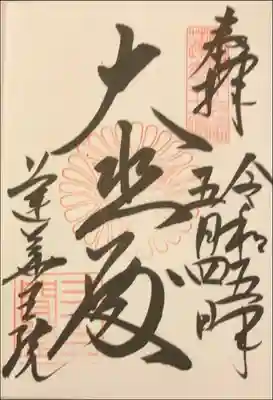 奉拝
令和五年
五月四日
大悲殿
蓮華王院